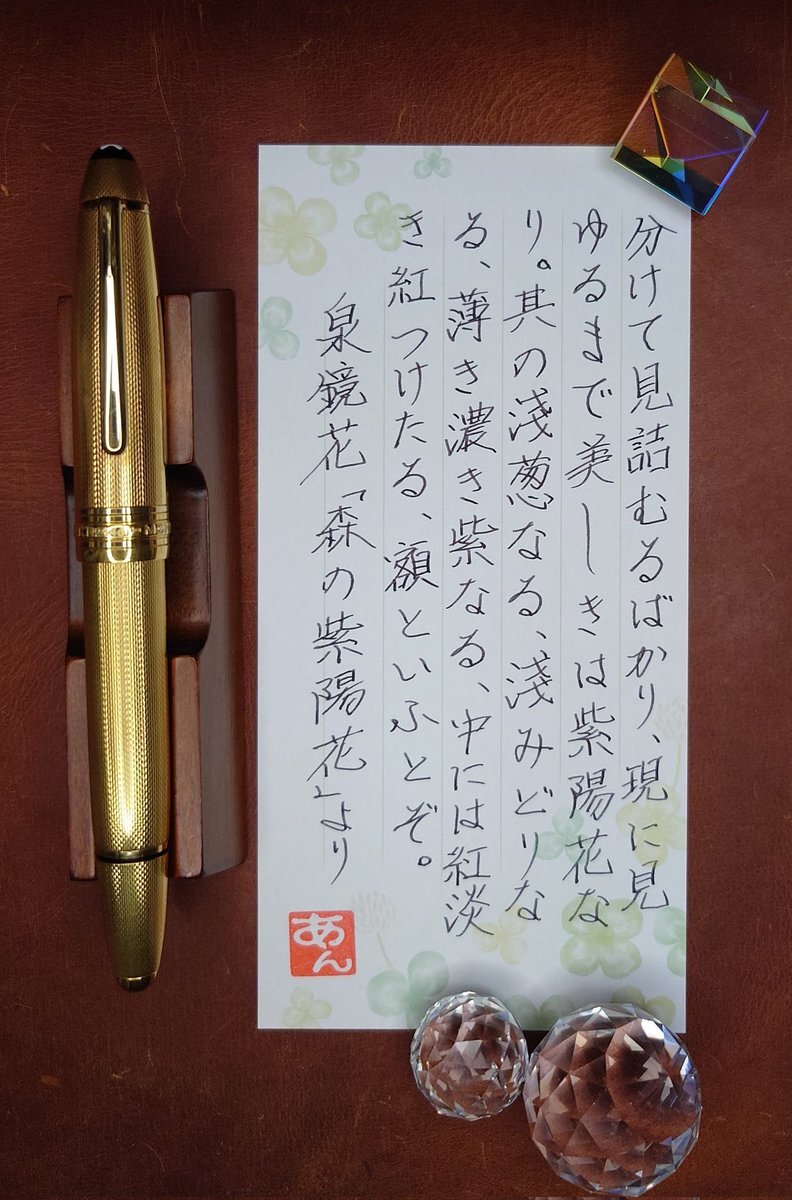 分けて見詰むるばかり、現に見
ゆるまで美しきは紫陽花な
り。其の淺葱なる、淺みどりな
る、薄き濃き紫なる、中には紅淡
き紅つけたる、額といふとぞ。
泉鏡花「森の紫陽花」より
あん